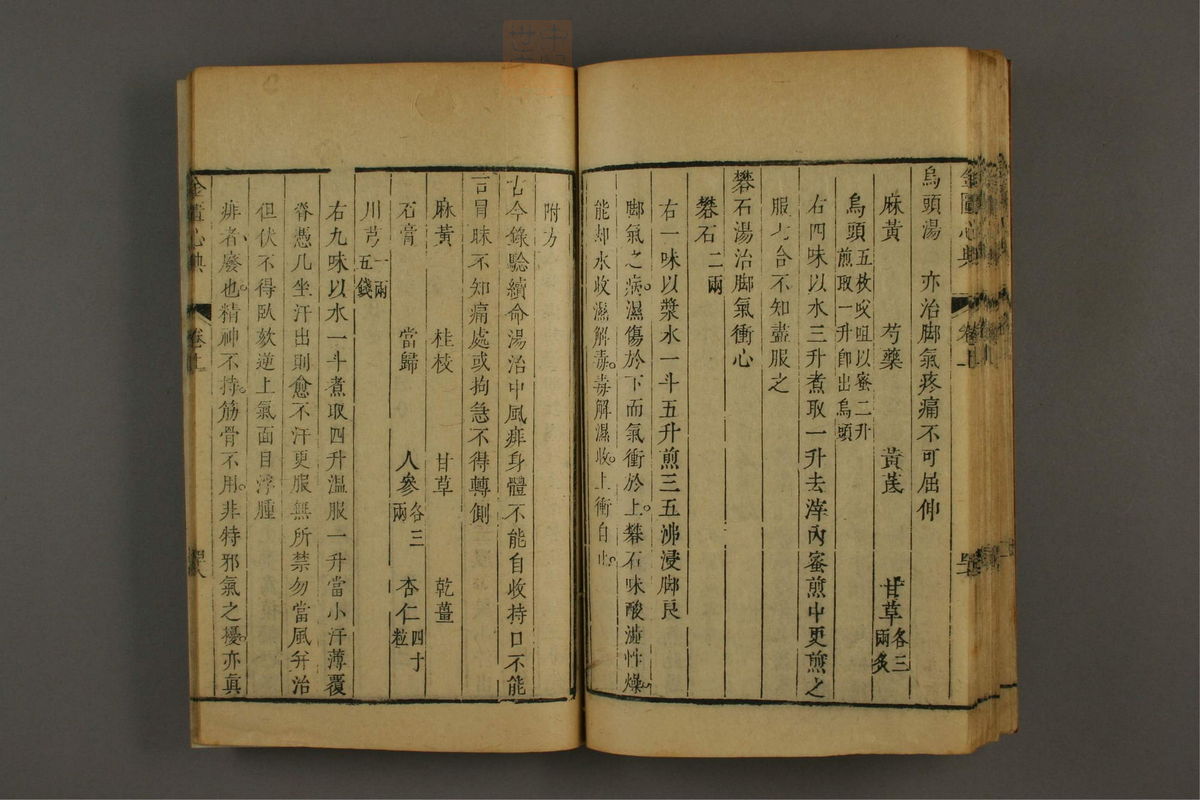 金匱心典
卷上
烏頭湯　亦治脚氣疼痛不可屈伸
麻黃　芍藥　黃芪　甘草各三兩炙
烏頭五枚㕮咀以蜜二升煎取一升卽出烏頭
右四味以水三升煮取一升去滓內蜜煎中更煎之
服七合不知盡服之
礬石湯治脚氣衝心
礬石二兩
右一味以漿水一斗五升煎三五沸浸脚良
脚氣之病濕傷於下而氣衝於上礬石味酸澁性燥
能却水收濕解毒毒解濕收上衝自止
附方
古今錄驗續命湯治中風痱身體不能自收持口不能
言冒昧不知痛處或拘急不得轉側
麻黃　桂枝　甘草　乾薑
石膏　當歸　人參各三兩　杏仁四十粒
川芎一兩五錢
右九味以水一斗煮取四升溫服一升當小汗薄覆
脊憑几坐汗出則愈不汗更服無所禁勿當風并治
但伏不得臥欬逆上氣面目浮腫
痱者廢也精神不持筋骨不用非特邪氣之擾亦真
金匱心典
卷上